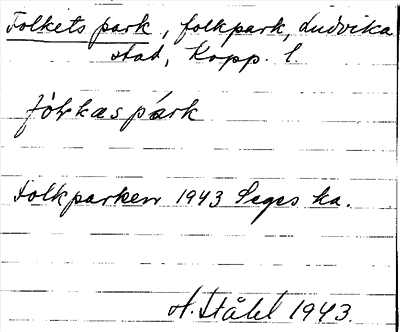 Folkets park, folkpark, Ludvika
stad, Kopp. l.
fòlkas párk
Folkparken 1943 Seges ka.
H. Ståhl 1943.